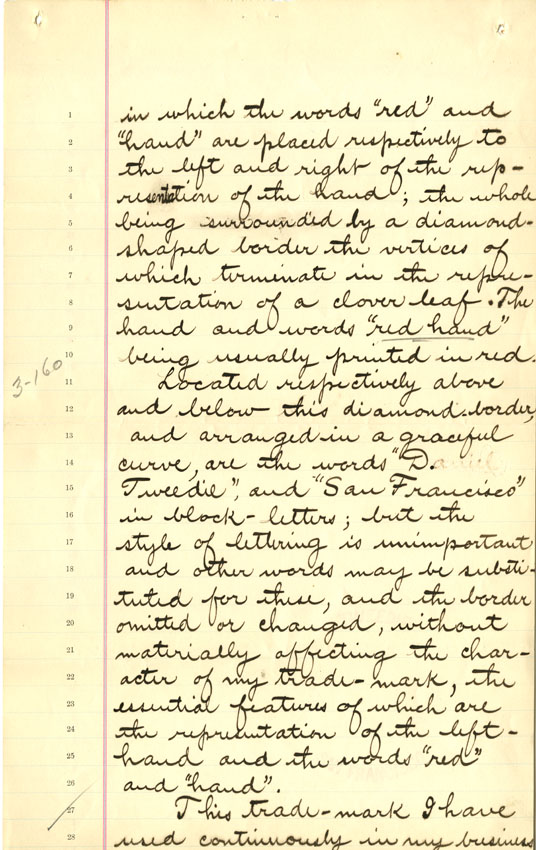 1 in which the words "red" and
2 "hand" are placed respectively to
3 the left and right of the rep-
4 resentation of the hand; the whole
5 being surrounded by a diamond-
6 shaped border the vertices of
7 which terminate in the repre-
8 sentation of a clover leaf. The
9 hand and words "red hand"
10 being usually printed in red.
3-160
11 Located respectively above
12 and below this diamond border,
13 and arranged in a graceful
14 curve, are the words "D.
15 Tweedie", and "San Francisco"
16 in block-letters; but the
17 style of lettering is unimportant
18 and other words may be substi-
19 tuted for these, and the border
20 omitted or changed, without
21 materially affecting the char-
22 acter of my trade-mark, the
23 essential features of which are
24 the representation of the left-
25 hand and the words "red"
26 and "hand".
27 This trade-mark I have
28 used continuously in my business